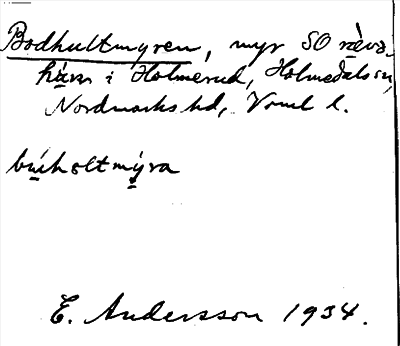 Bodhultmyren, myr SO räva-
håva i Holmerud, Holmedals sn,
Nordmarks hd, Vrml l.
búholtmýra
E. Andersson 1934.